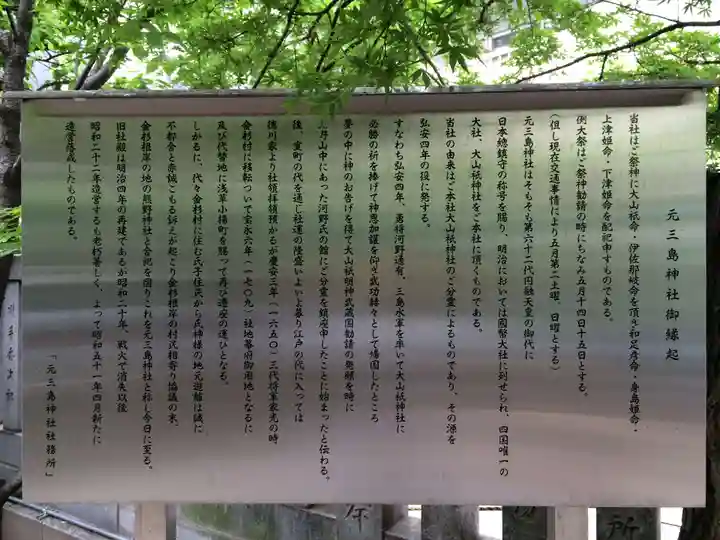 元三島神社御縁起
当社はご祭神に大山祇命・伊佐那岐命を頂き和足彦命・身島姫命・
上津姫命・下津姫命を配祀申すものである。
例大祭はご祭神勧請の時にちなみ五月十四日十五日とする。
(但し現在交通事情により五月第二土曜、日曜とする)
元三島神社はそもそも第六十二代円融天皇の御代に
日本總鎮守の称号を賜り、明治においては國幣大社に封ぜられ、四国唯一の
大社、大山祇神社をご本社に頂くものである。
当社の由来はご本社大山祇神社のご分霊によるものであり、その源を
弘安四年の役に発する。
すなわち弘安四年、勇将河野通有、三島水軍を率いて大山祇神社に
必勝の祈を捧げて神恩加護を仰ぎ武功赫々として帰国したところ
夢の中に神のお告げを得て大山祇明神武蔵国勧請の発願を時に
上野山中にあった河野氏の館にご分霊を鎮座申したことに始まったと伝わる。
後、室町の代を通じ社運の隆盛いよいよ募り江戸の代に入っては
徳川家より社領拝領預かるが慶安三年(一六五〇)三代将軍家光の時
金杉村に移転ついで宝永六年(一七〇九)社地幕府御用地となるに
及び代替地に浅草小揚町を賜って再び遷座の運びとなる。
しかるに、代々金杉村に住む氏子住民から氏神様の地元遊離は誠に
不都合と赤誠こもる訴えが起こり金杉根岸の村民相寄り協議の末、
金杉根岸の地の熊野神社と合祀を図りこれを元三島神社と称し今日に至る。
旧社殿は明治四年の再建であるが昭和二十年、戦火で消失以後
昭和二十二年造営するも老朽著しく、よって昭和五十一年四月新たに
造営落成したものである。
「元三島神社社務所」
所